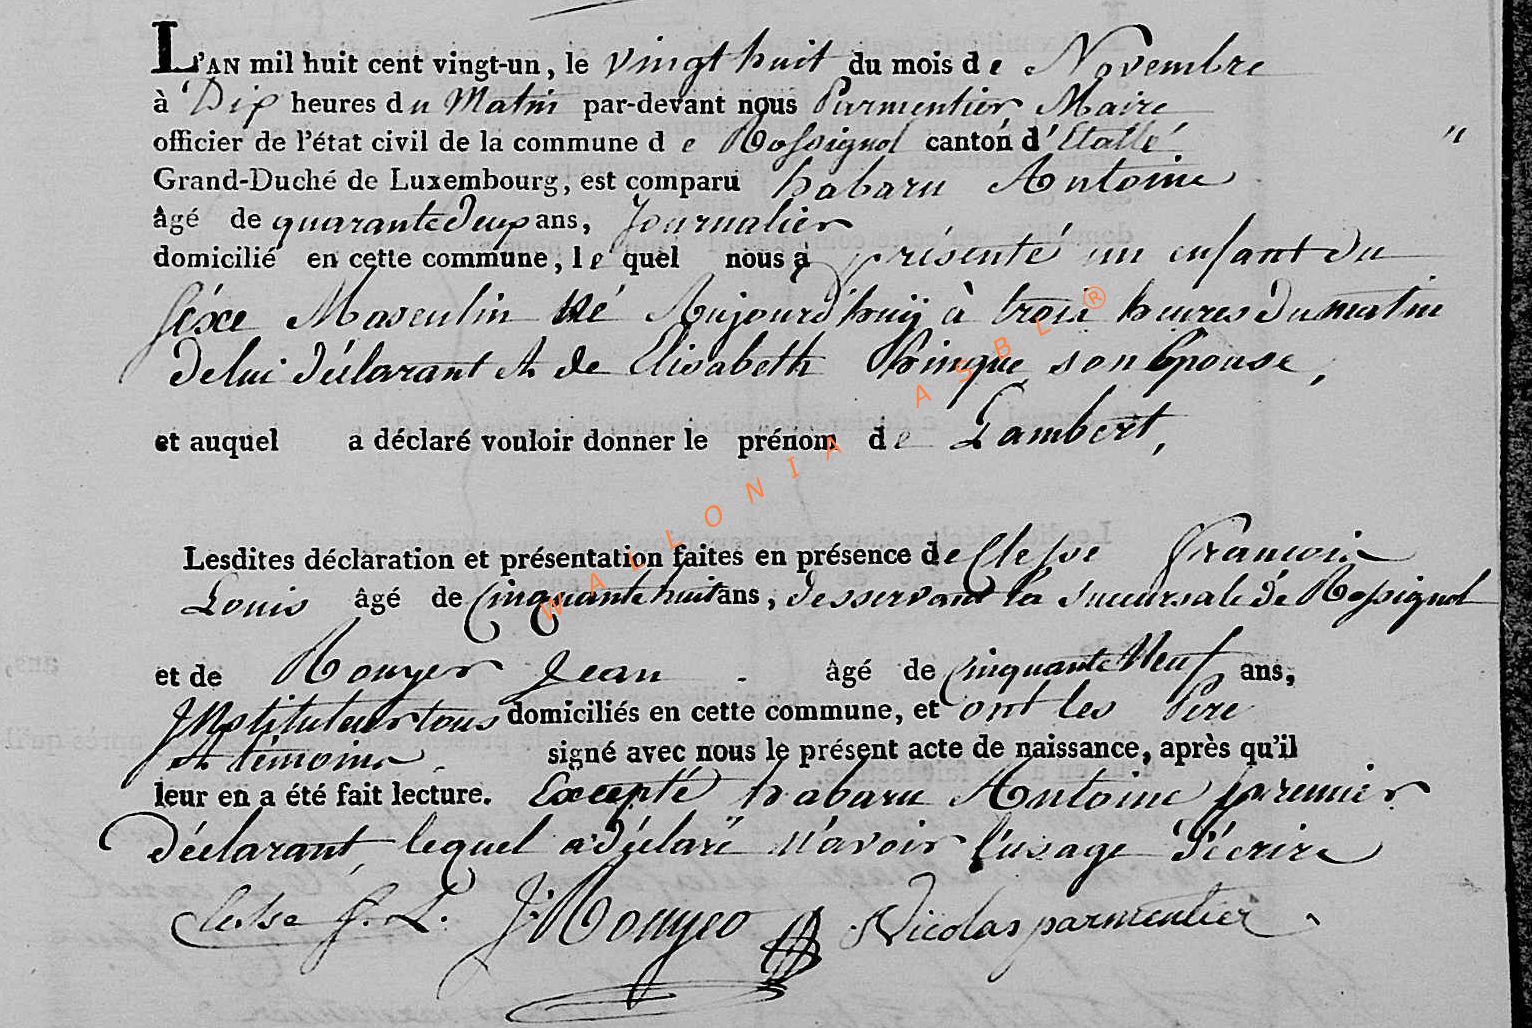 L'AN mil huit cent vingt-un, le vingt huit du mois de Novembre
à Dix heures du Matin par-devant nous Parmentier Maire
officier de l'état civil de la commune de Rossignol canton d'Etalle "
Grand-Duché de Luxembourg, est comparu habaru Antoine
âgé de quarante deux ans, Journalier
domicilié en cette commune, lequel nous a présenté un enfant du
séxe Masculin né Aujourd'huy à trois heures du matin
de lui déclarant et de Elisabeth hinque son Epouse,
et auquel a déclaré vouloir donner le prénom de Lambert,
Lesdites déclaration et présentation faites en présence de Clesse Francois
Louis âgé de Cinquante huit ans, desservant la succursale de Rossignol
et de Rouyer Jean âgé de cinquante Neuf ans,
Instituteur tous domiciliés en cette commune, et ont les Pere
et témoins signé avec nous le présent acte de naissance, après qu'il
leur en a été fait lecture. Excepté habaru Antoine premier
déclarant, lequel a déclaré n'avoir l'usage d'écrire
Clesse f. L. J Rouyer Nicolas parmentier
WALLONIA ASBL ®